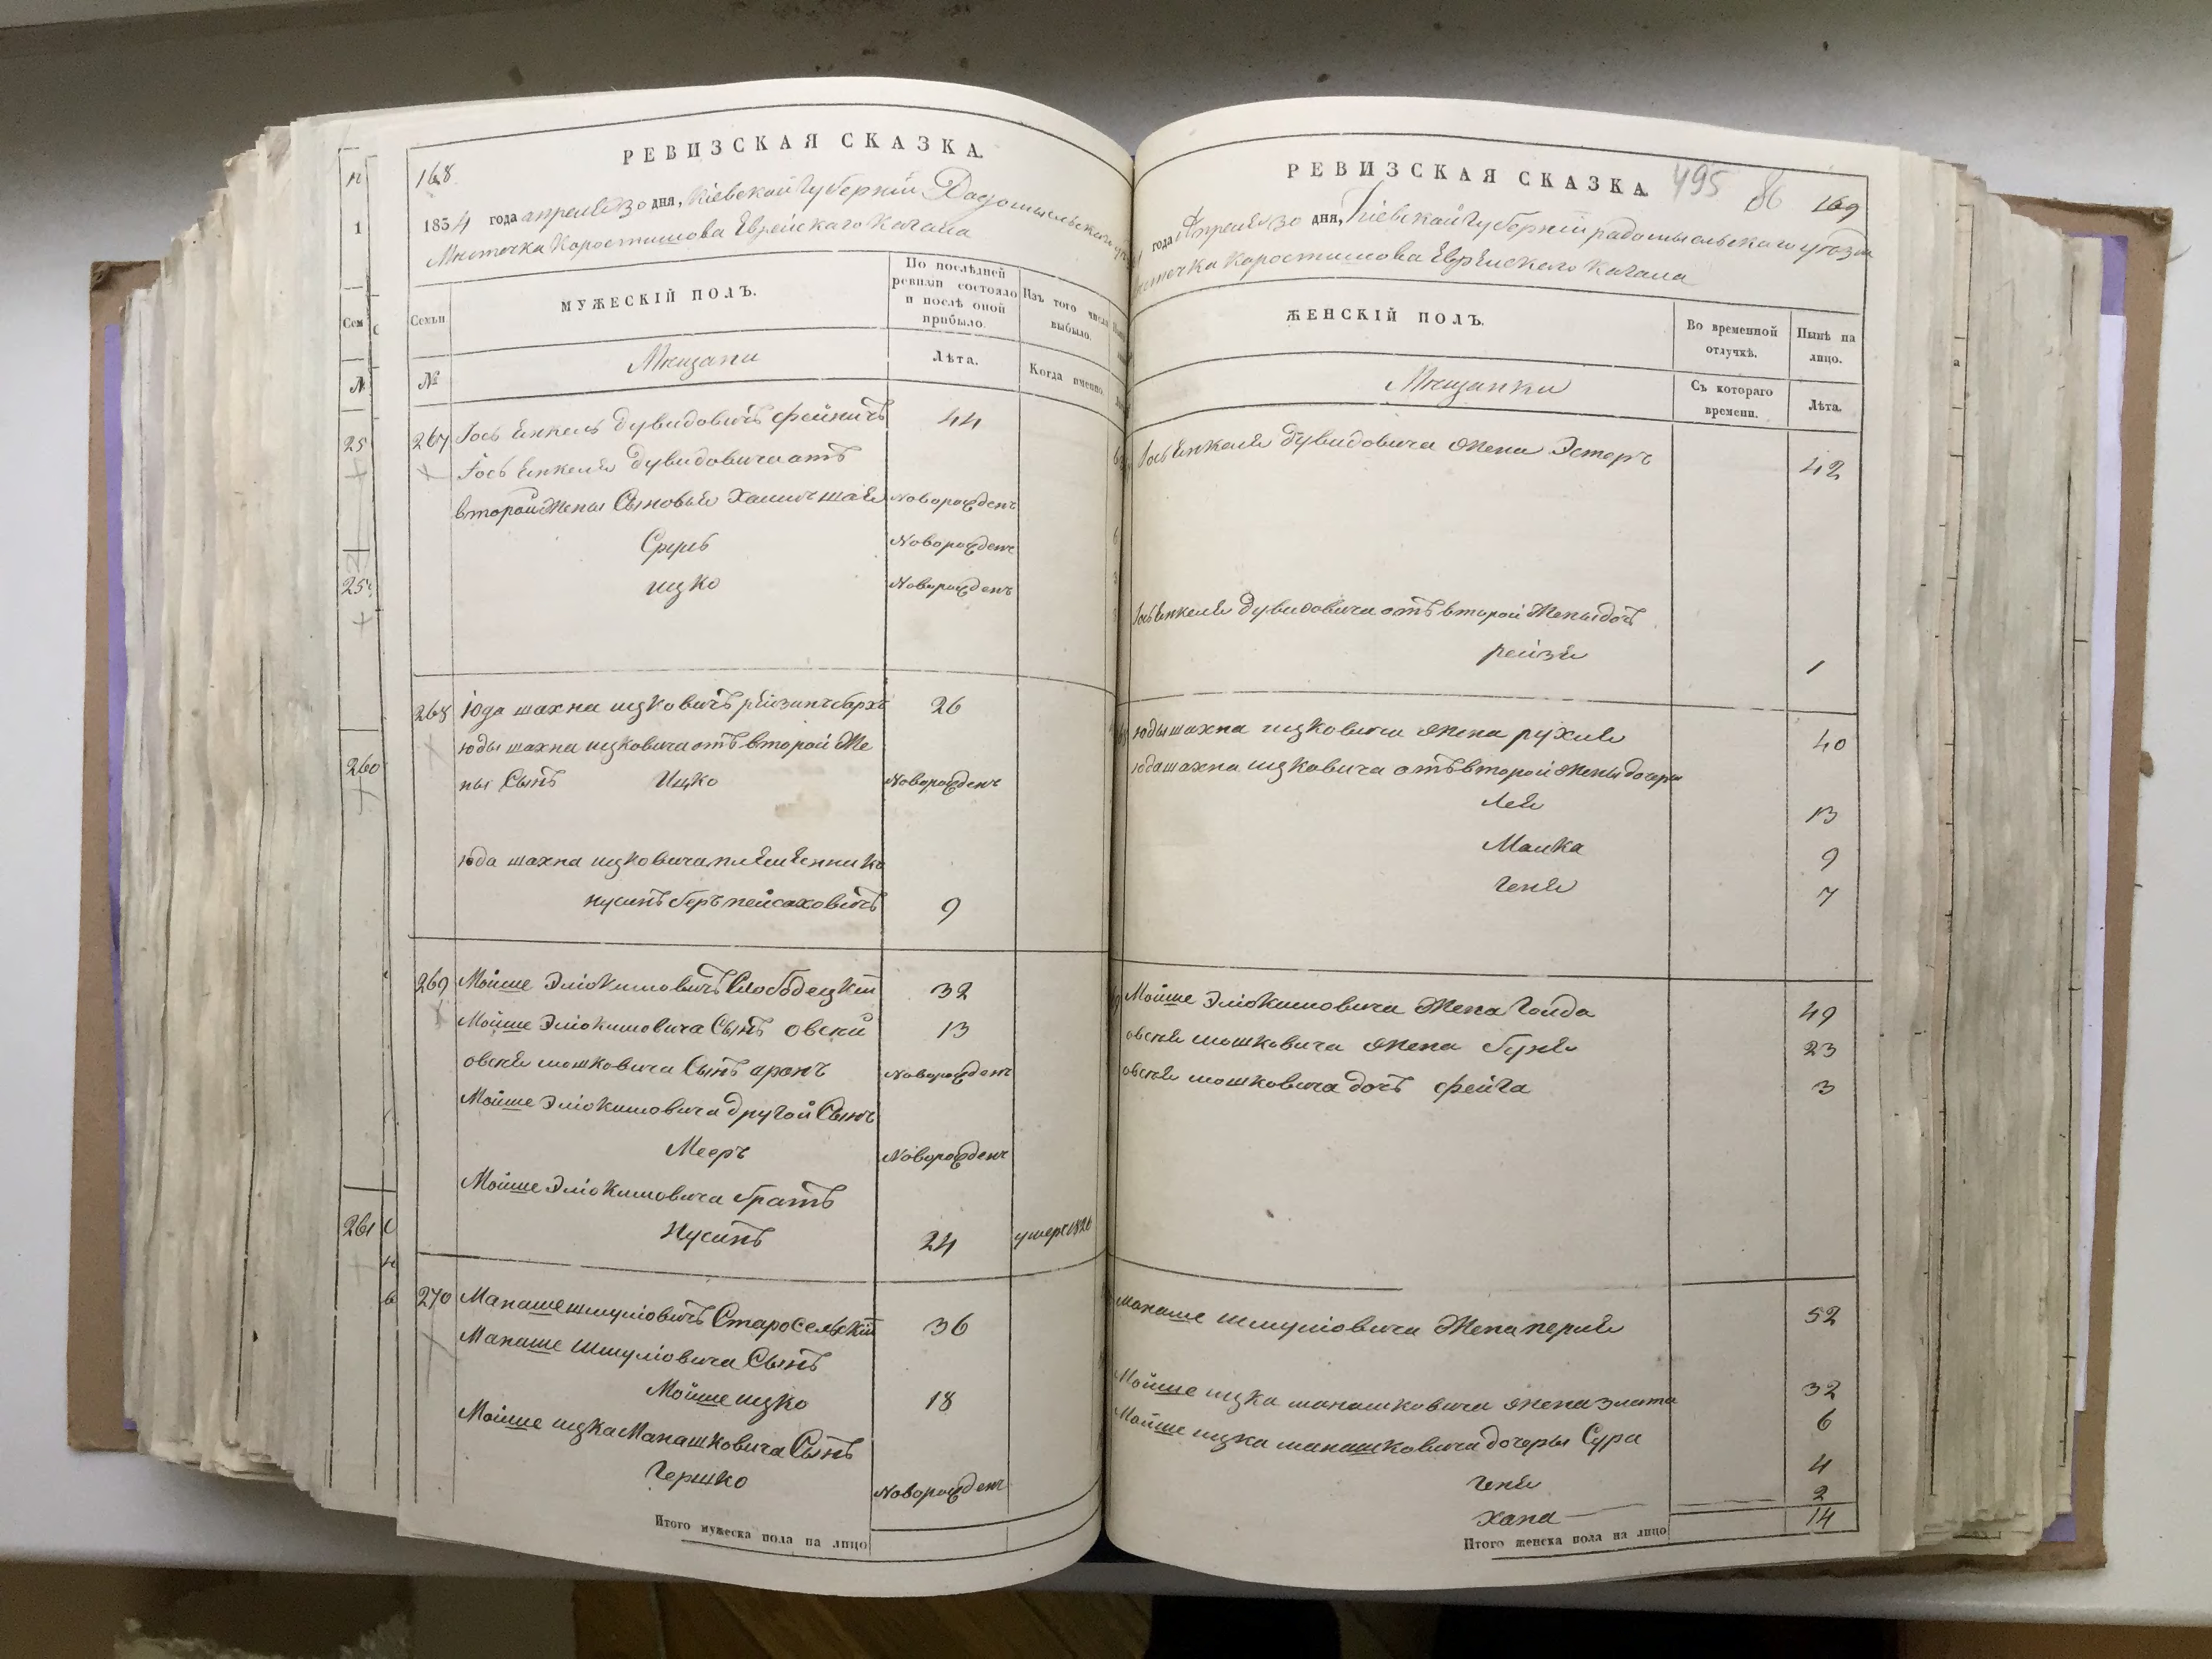 168
РЕВИЗСКАЯ СКАЗКА.
1834 года апреля 30 дня, Кіевской Губерніи Радомысльскаго
Мѣстечка Коростишова Еврейскаго Кагала
Семьи
МУЖЕСКІЙ ПОЛЪ.
По послѣдней ревизіи состояло и послѣ оной прибыло.
Изъ того числа выбыло.
№
Мещани
Лѣта.
Когда именно.
267 Іось Енкель Дувидовичъ Фейничъ 44
Іось Енкеля Дувидовича отъ
второй Жены Сыновья Хаимъ шая Новорожденъ
Сруль Новорожденъ
ицко Новорожденъ
268 Юда шахна ицковичъ рейзинъбархъ 26
юды шахна ицковича отъ второй Же
ны Сынъ Ицко Новорожденъ
юда шахна ицковича племенника
нусинъ беръ пейсаховичъ 9
269 Мойше Эліокимовичъ Слободецкій 32
Мойше Эліокимовича Сынъ овсей 13
овсея мошковича Сынъ аронъ Новорожденъ
Мойше Эліокимовича другой Сынъ
Мееръ Новорожденъ
Мойше Эліокимовича братъ
Нусинъ 24 умеръ 1826
270 Манаше шмуліовичъ Старосельскій 36
Манаше шмуліовича Сынъ
Мойше ицко 18
Мойше ицка Манашковича Сынъ
Гершко Новорожденъ
Итого мужеска пола на лицо
РЕВИЗСКАЯ СКАЗКА.
495 86 169
года Апреля 30 дня, Кіевской Губерніи радомысльскаго уезда
местечка Коростишова Еврейскаго Кагала
ЖЕНСКІЙ ПОЛЪ.
Во временной отлучкѣ.
Нынѣ на лицо.
Мещанки
Съ котораго времени.
Лѣта.
Іось Енкеля Дувидовича жена Эстеръ 42
Іось Енкеля Дувидовича отъ второй Жены дочь
рейзя 1
юды шахна ицковича жена рухля 40
юда шахна ицковича отъ второй жены дочери
лея 13
Малка 9
геня 7
Мойше Эліокимовича Жена Голда 49
овсея мошковича жена буня 23
овсея мошковича дочь фейга 3
манаше шмуліовича Жена перля 52
Мойше ицка манашковича жена злата 32
Мойше ицка манашковича дочеры Сура 6
геня 4
хана 2
Итого женска пола на лицо 14
25
260
261